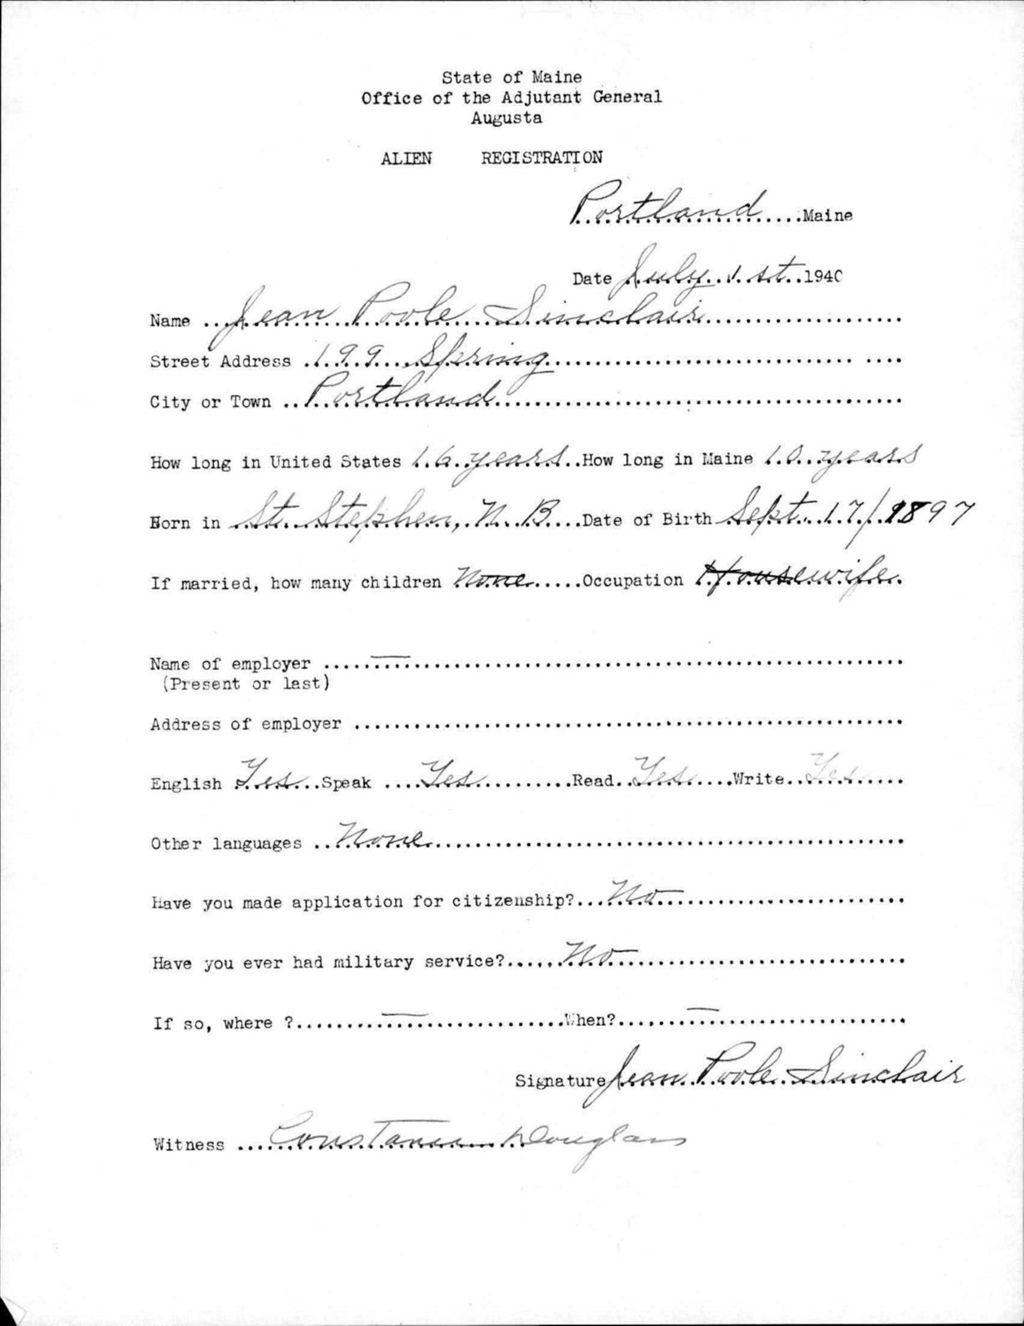 State of Maine
Office of the Adjutant General
Augusta
ALIEN REGISTRATION
Portland Maine
Date July 1st 1940
Name Jean Poole Sinclair
Street Address 199 Spring
City or Town Portland
How long in United States 16 years How long in Maine 10 years
Born in St. Stephen, N. B. Date of Birth Sept. 17/1897
If married, how many children None Occupation Housewife
Name of employer —
(Present or last)
Address of employer
English Yes Speak Yes Read Yes Write Yes
Other languages None
Have you made application for citizenship? No
Have you ever had military service? No
If so, where ? — When? —
Signature Jean Poole Sinclair
Witness Constance Douglass